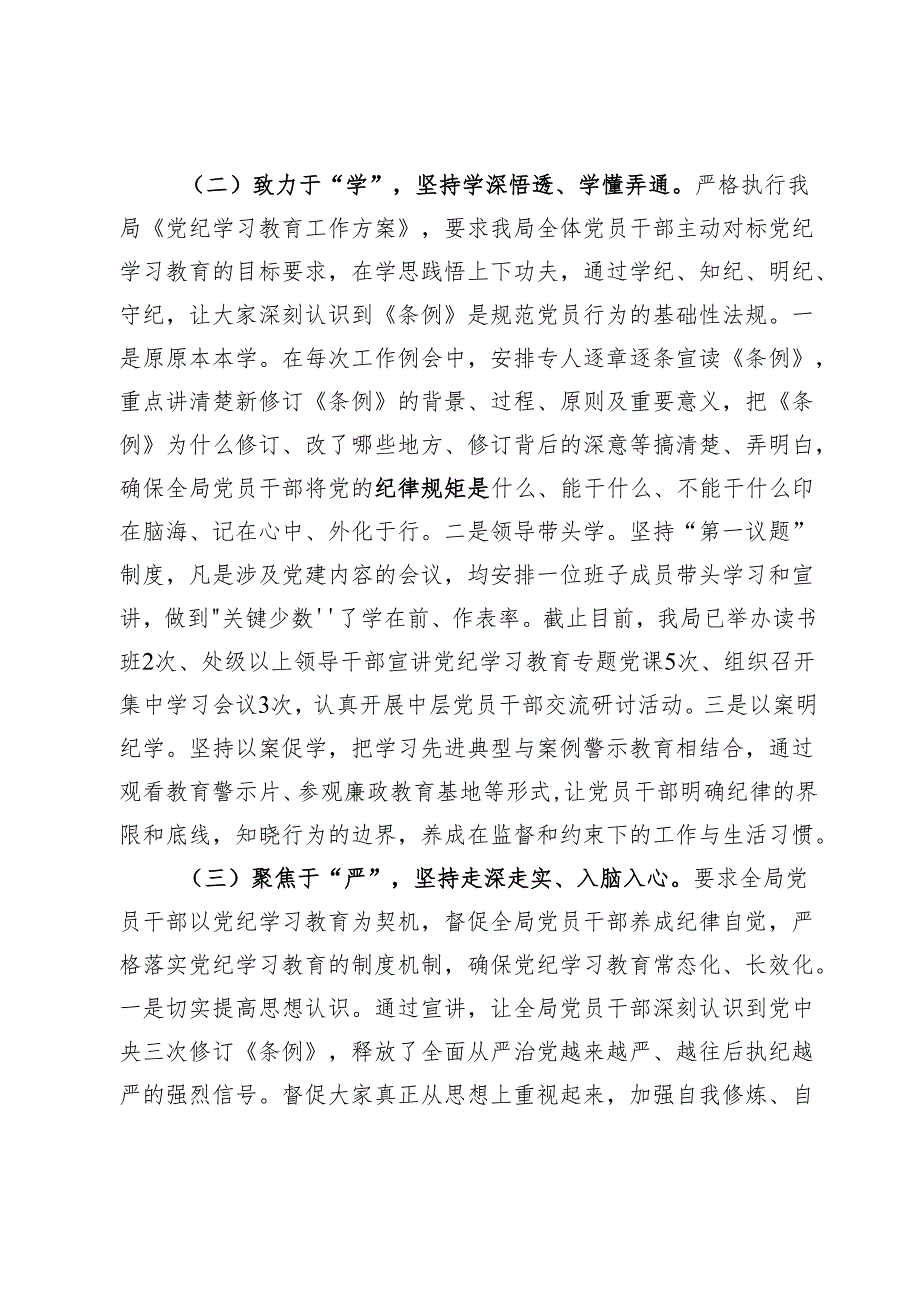 （二）致力于“学”，坚持学深悟透、学懂弄通。严格执行我
局《党纪学习教育工作方案》，要求我局全体党员干部主动对标党纪
学习教育的目标要求，在学思践悟上下功夫，通过学纪、知纪、明纪、
守纪，让大家深刻认识到《条例》是规范党员行为的基础性法规。一
是原原本本学。在每次工作例会中，安排专人逐章逐条宣读《条例》，
重点讲清楚新修订《条例》的背景、过程、原则及重要意义，把《条
例》为什么修订、改了哪些地方、修订背后的深意等搞清楚、弄明白，
确保全局党员干部将党的纪律规矩是什么、能干什么、不能干什么印
在脑海、记在心中、外化于行。二是领导带头学。坚持“第一议题”
制度，凡是涉及党建内容的会议，均安排一位班子成员带头学习和宣
讲，做到"关键少数''了学在前、作表率。截止目前，我局已举办读书
班2次、处级以上领导干部宣讲党纪学习教育专题党课5次、组织召开
集中学习会议3次，认真开展中层党员干部交流研讨活动。三是以案明
纪学。坚持以案促学，把学习先进典型与案例警示教育相结合，通过
观看教育警示片、参观廉政教育基地等形式,让党员干部明确纪律的界
限和底线，知晓行为的边界，养成在监督和约束下的工作与生活习惯。
（三）聚焦于“严”，坚持走深走实、入脑入心。要求全局党
员干部以党纪学习教育为契机，督促全局党员干部养成纪律自觉，严
格落实党纪学习教育的制度机制，确保党纪学习教育常态化、长效化。
一是切实提高思想认识。通过宣讲，让全局党员干部深刻认识到党中
央三次修订《条例》，释放了全面从严治党越来越严、越往后执纪越
严的强烈信号。督促大家真正从思想上重视起来，加强自我修炼、自